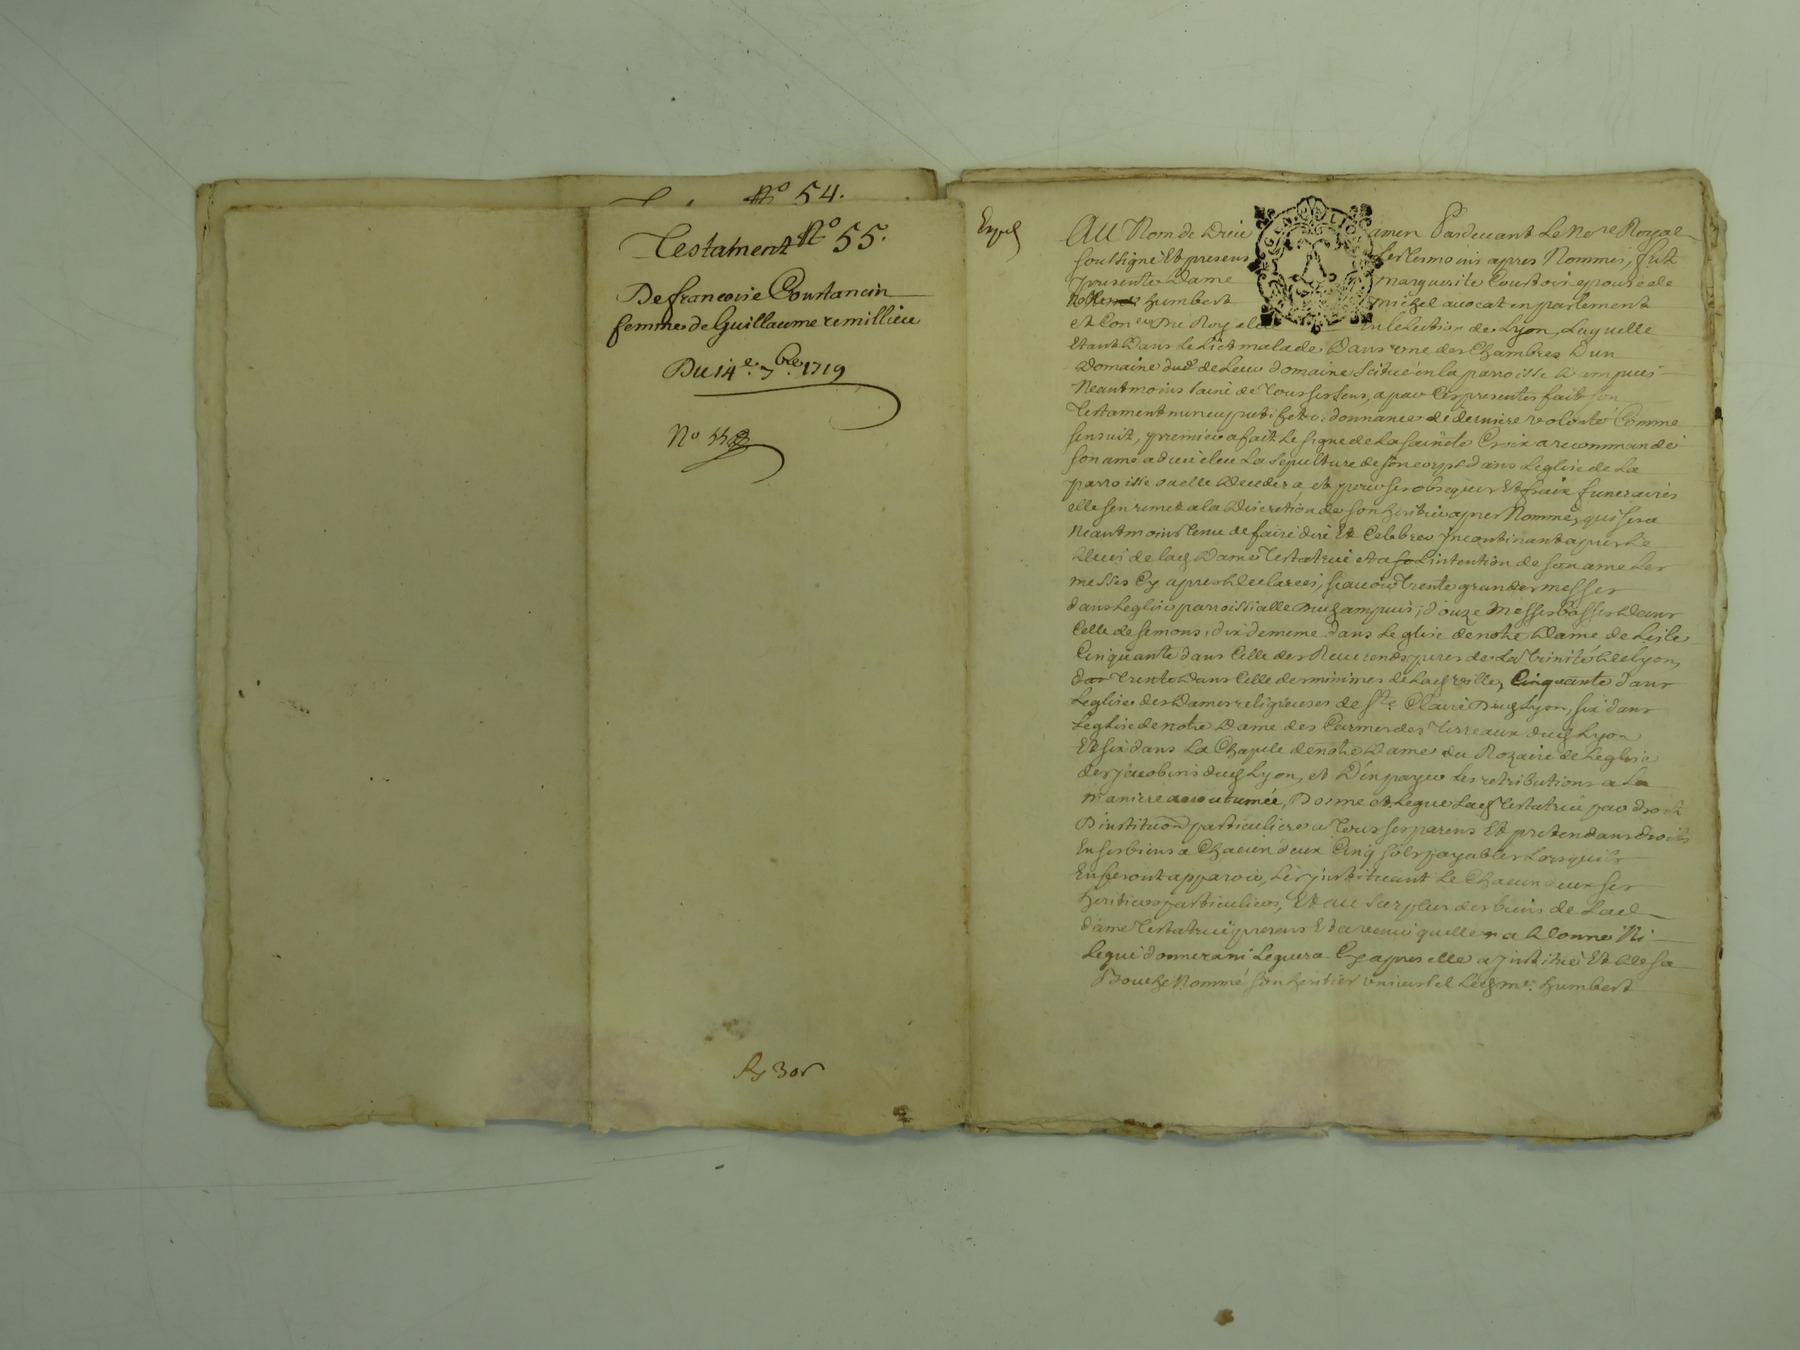 N° 54.
Testament N° 55.
De francoise Constancin
femme de Guillaume remillieu
Du 14e. 7bre. 1719
N° 55
Expé
AU Nom de Dieu amen Pardevant Le No.re Royal
soussigné Et presens les tesmoins apres Nommes, fut
presente Dame marguerite Coustois epouse de
Noble humbert michel avocat en parlement
et Con.er Du Roy en Lelection de Lyon, Laquelle
Etant Dans Le Lict malade Dans une des Chambres D'un
Domaine scitué en la parroisse D'ampuis
Neantmoins saine de Tous ses sens, a par Ces presentes fait son
Testament nuncupatif et ordonnance de derniere volonté Comme
sensuit, premier a fait Le signe de La sainte Croix a recommandé
son ame a dieu eleu La sepulture de son corps dans Leglise de La
parroisse ou elle Decedera, et pour ses obseques Et fraix funeraires
elle sen remet a la Discretion de son heritier apres Nommé, qui sera
Neantmoins Tenu de faire dire Et Celebrer Incontinant apres Le
Deces de lad Dame Testatrice et a Lintention de son ame Les
messes Cy apres Declarees, scavoir Trente grandes messes
dans Leglise parroissialle Dud ampuis, douze Messes basses Dans
Celle de semons, dix de meme dans Leglise de notre Dame de Lisle
Cinquante dans Celle des Reverends peres de La Trinité de Lyon,
Trente Dans Celle des minimes de Lad ville, Cinquante dans
Leglise des Dames religieuses de S.te Claire Dud Lyon, six dans
Leglise de notre Dame des Carmes des Terreaux dud Lyon
Et six dans La Chapelle de notre Dame du Rozaire de Leglise
des jacobins dud Lyon, et D'en payer Les retributions a La
maniere accoutumée, Donne et Legue Lad Testatrice par droit
D'institu.on particuliere a Tous ses parens Et pretendans droits
En ses biens a Chacun deux Cinq sols payables Lorsquils
En feront apparoir, Les instituant Le Chacun deux ses
heritiers particuliers, Et au surplus des biens de Lad
dame Testatrice presens Et a venir quelle n a Donné Ni
Legué donnera ni Leguera Cy apres elle a Institué Et De sa
Bouche Nommé son heritier universel Led m.e humbert